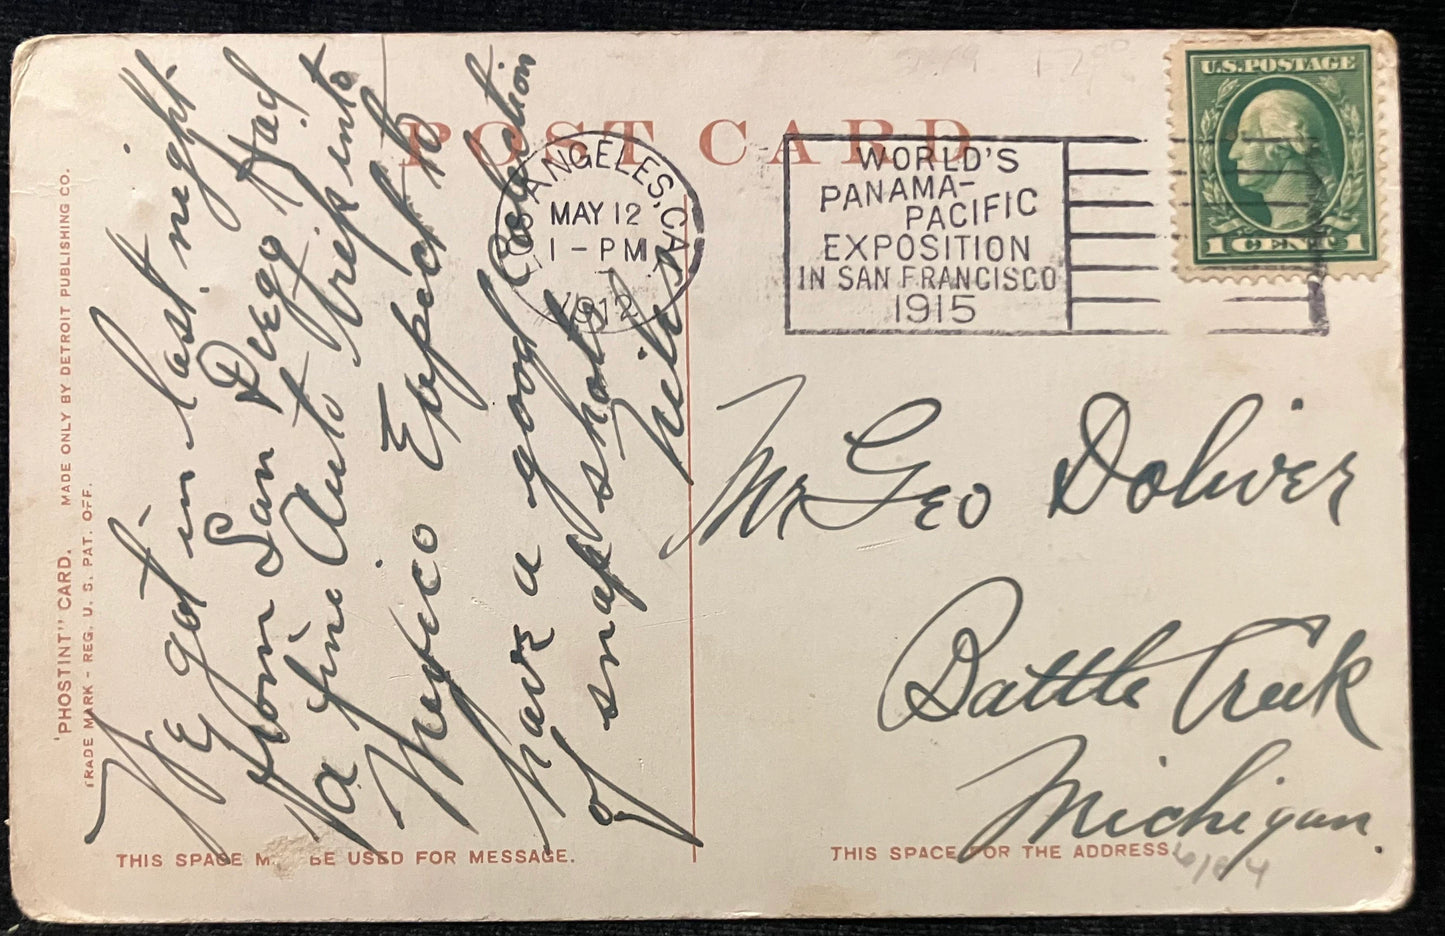 POST CARD
'PHOSTINT" CARD. MADE ONLY BY DETROIT PUBLISHING CO.
TRADE MARK - REG. U. S. PAT. OFF.
We got in last night
from San Diego Had
a fine Auto trip into
Mexico Expect to
have a good Collection
of snap shots
LOS ANGELES, CAL.
MAY 12
1 - PM
1912
WORLD'S
PANAMA-
PACIFIC
EXPOSITION
IN SAN FRANCISCO
1915
U.S. POSTAGE
1 CENT 1
Mr Geo Doliver
Battle Creek
Michigan.
THIS SPACE M BE USED FOR MESSAGE.
THIS SPACE FOR THE ADDRESS